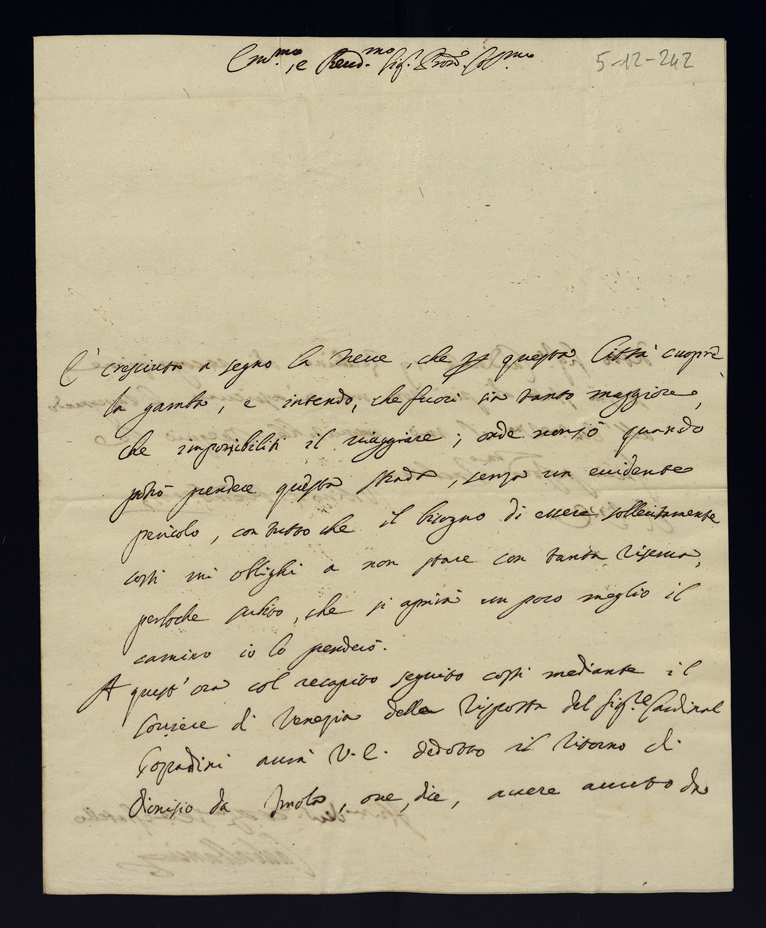 Em.mo, e Rend.mo Sig.r Pron. Col.mo
5-12-242
È cresciuta a segno la neve, che per questa Città cuopre
la gamba, e intendo, che fuori sia tanto maggiore,
che impossibiliti il viaggiare; onde non sò quando
potrò prendere questa strada, senza un evidente
pericolo, con tutto che il bisogno di essere sollecitamente
costì mi oblighi a non stare con tanta riserva,
perloche subito, che si aprirà un poco meglio il
camino io lo prenderò.
A quest'ora col recapito seguito costì mediante il
Corriere di Venezia della risposta del Sig.re Cardinal
Corradini avrà V.E. dedotto il ritorno di
Dionisio da Imola, ove, dice, avere avuto da